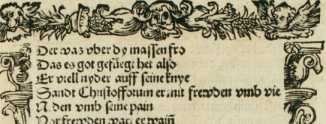 Der was vber dy massen fro
Das es got gefüegt het also
Er viell nyder auff seine knye
Sandt Christofforum er mit frewden vmb vie
N den vmb seine pain
Vor frewden wart er wain